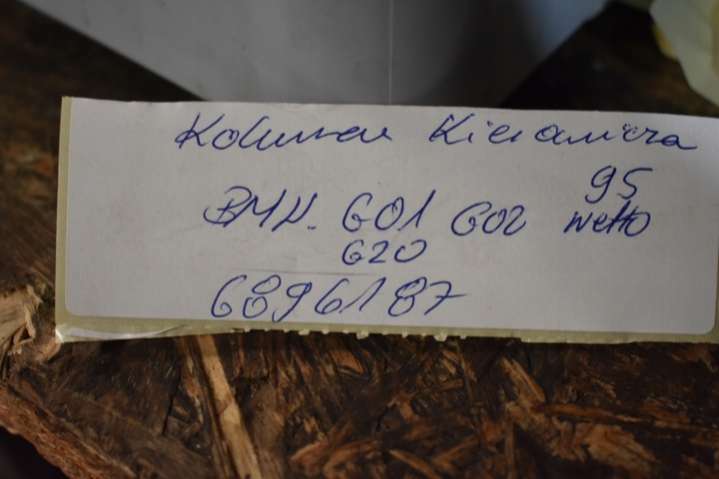 Kolumna Kierownicza
95
BMW. G01 G02 netto
G20
6896187